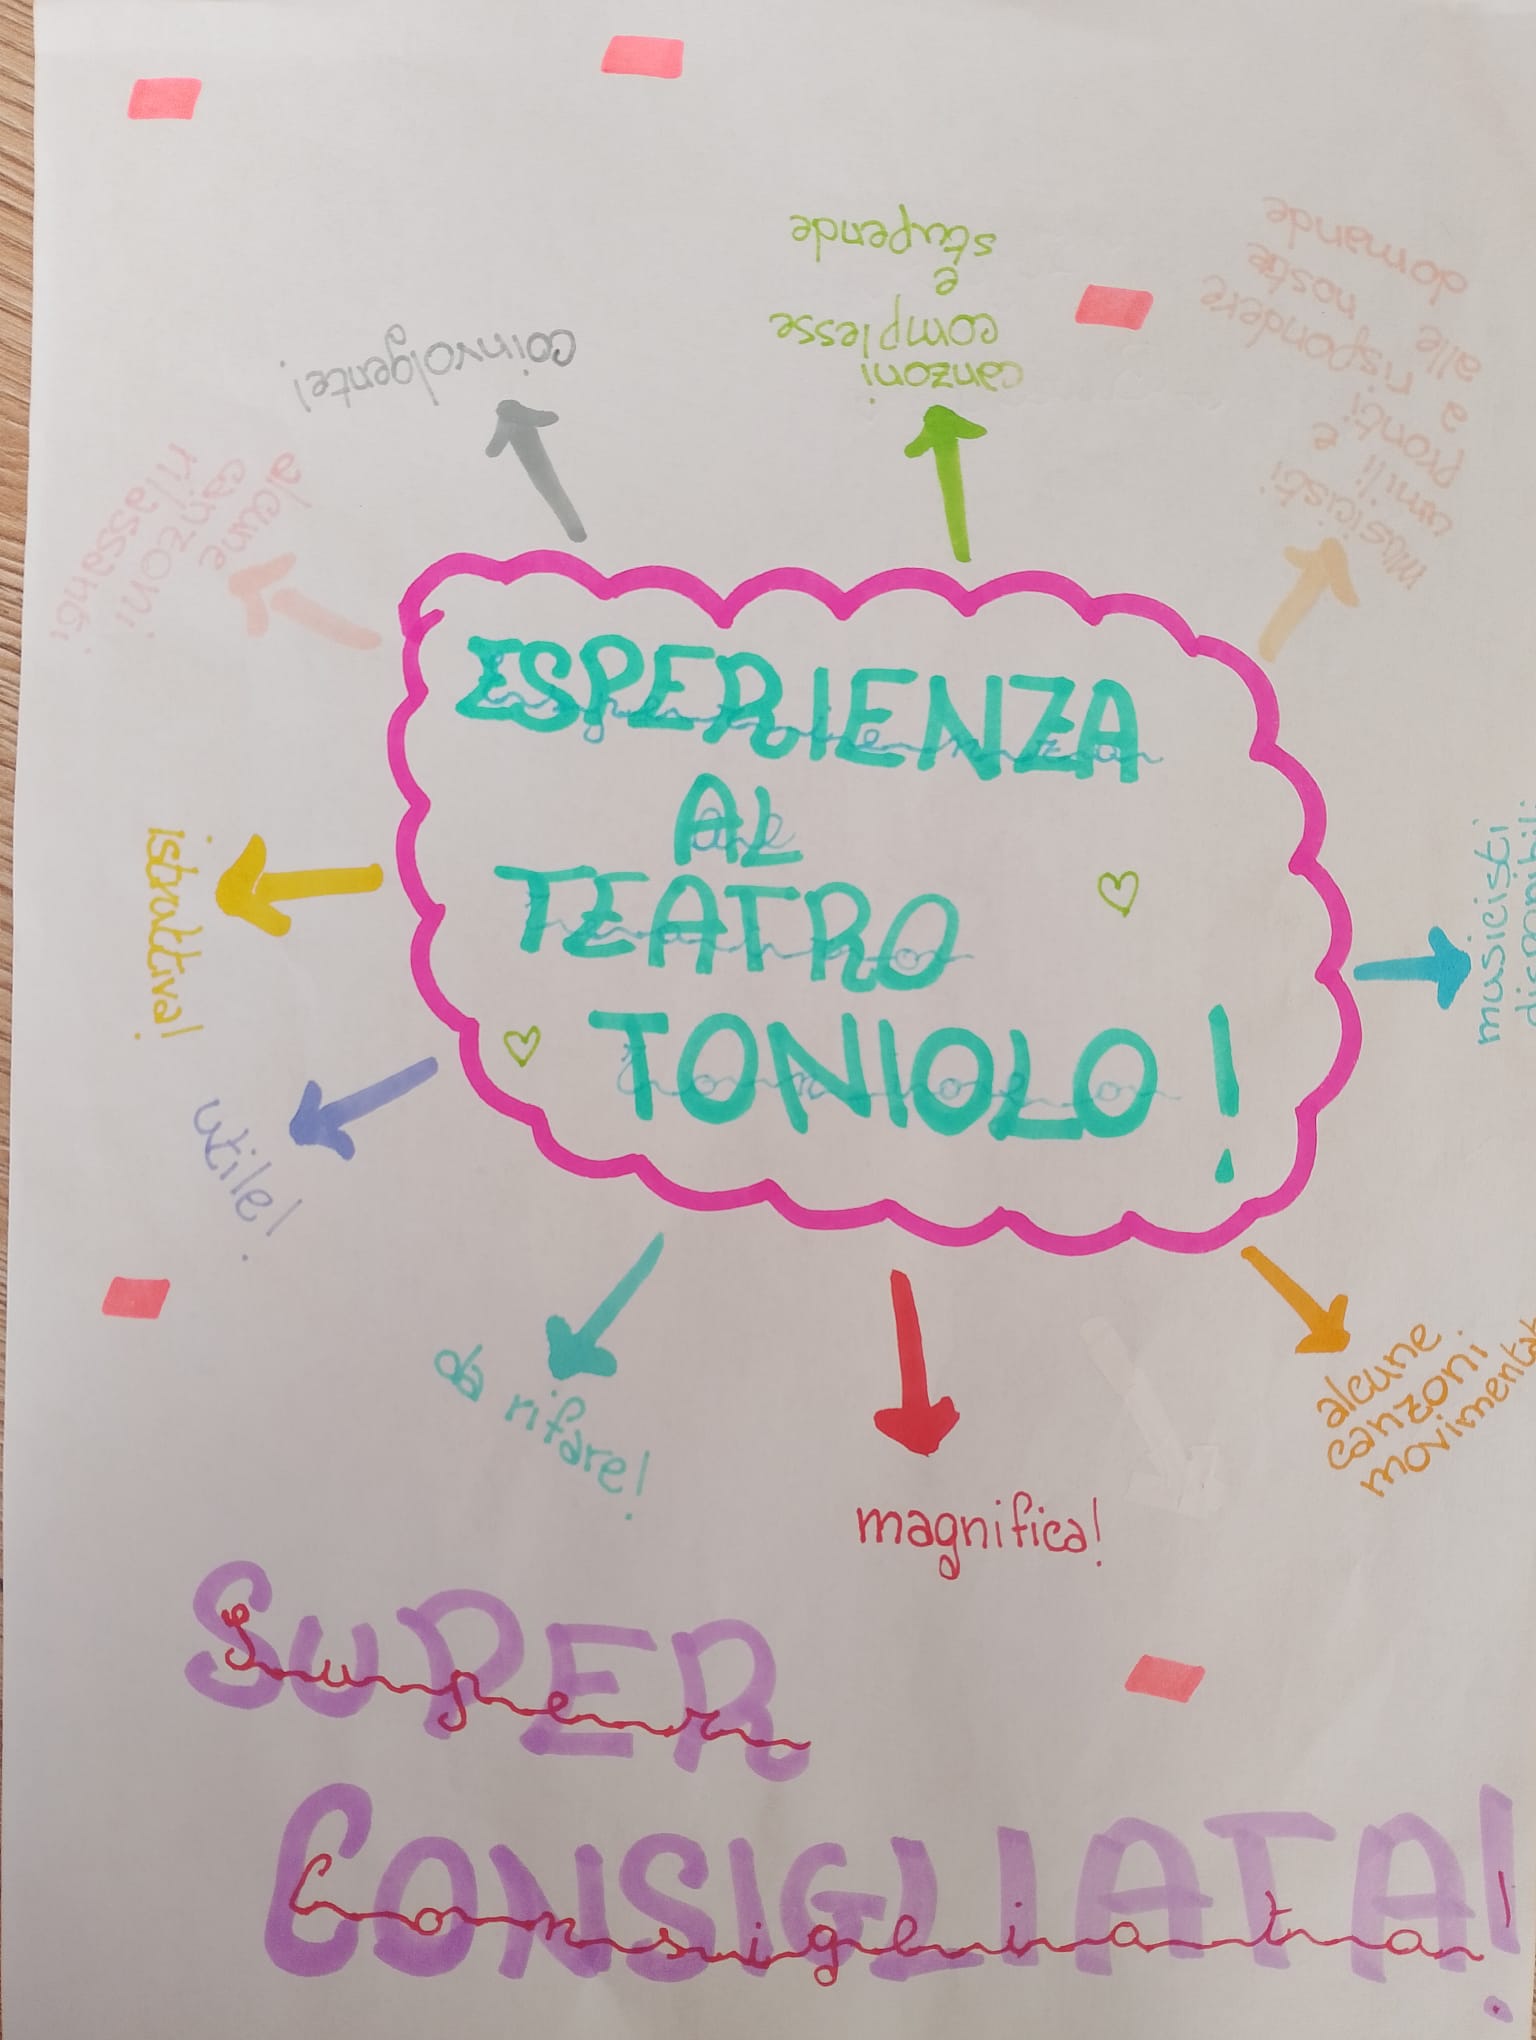 ESPERIENZA
AL
TEATRO
TONIOLO!
coinvolgente!
canzoni
complesse
e
stupende
musicisti
umili e
pronti
a rispondere
alle noste
domande
musicisti
disponibili
alcune
canzoni
magnifica!
da rifare!
utile!
istruttiva!
alcune
canzoni
rilassanti
SUPER
Super
CONSIGLIATA!
Consigliata!